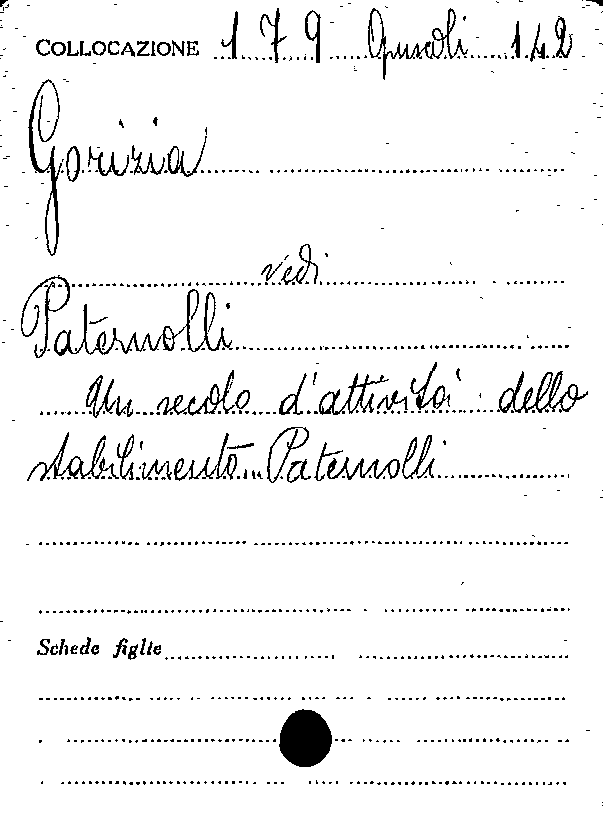 COLLOCAZIONE 179 Opuscoli 142
Gorizia
vedi
Paternolli
Un secolo d'attività dello
stabilimento Paternolli
Schede figlie